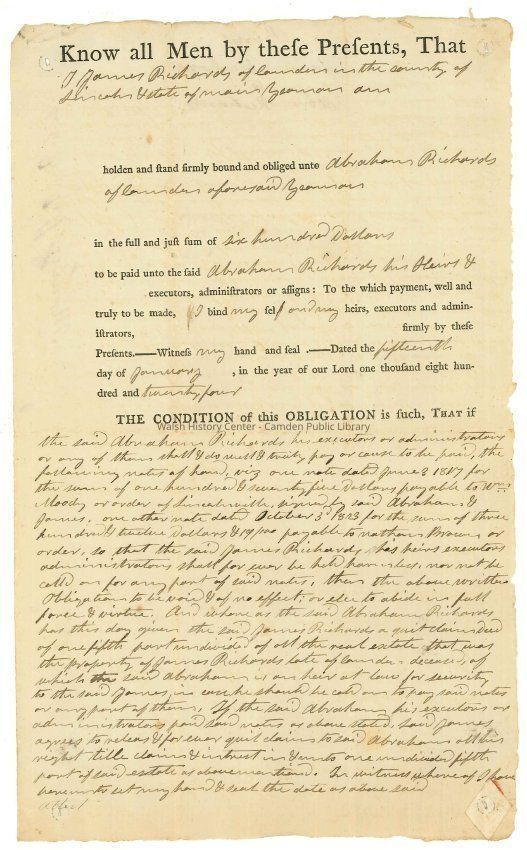 Know all Men by theſe Preſents, That
I James Richards of Camden in the county of
Lincoln & State of Main Yeoman am
holden and ſtand firmly bound and obliged unto Abraham Richards
of Camden aforesaid Yeoman
in the full and juſt sum of six hundred Dollars
to be paid unto the ſaid Abraham Richards his Heirs &
executors, adminiſtrators or aſſigns: To the which payment, well and
truly to be made, I bind my ſelf and my heirs, executors and admin-
iſtrators, firmly by theſe
Preſents.——Witneſs my hand and ſeal .—Dated the fifteenth
day of January , in the year of our Lord one thouſand eight hun-
dred and twenty four
THE CONDITION of this OBLIGATION is ſuch, THAT if
Walsh History Center - Camden Public Library
the said Abraham Richards his executors or administrators
or any of them shall & do well & truly pay or cause to be paid, the
following notes of hand, viz one note dated June 3 1817 for
the sum of one hundred & seventy five Dollars payable to Wm
Moody or order of Lincolnville, signed by said Abraham &
James, one other note dated October 3d 1823 for the sum of three
hundred & twelve Dollars & 19/100 payable to nathan Brown or
order, so that the said James Richards his heirs executors
administrators shall for ever be held harmless, nor not be
calld on for any part of said notes, then the above written
Obligation to be void & of no effect; or else to abide in full
force & virtue. And where as the said Abraham Richards
has this day given the said James Richards a quit claim deed
of one fifth part undivided of all the real estate that was
the property of James Richards late of Camden deceasd, of
which the said Abraham is an heir at law for security
to the said James, in case he should be calld on to pay said notes
or any part of them, If the said Abraham his executors or
administrators paid said notes as above stated, said James
agrees to release & for ever quit claim to said Abraham all his
right title claim & intrest in & unto one undivided fifth
part of said estate as above mentiond. In witness where of I have
hereunto set my hand & seal the date as above said